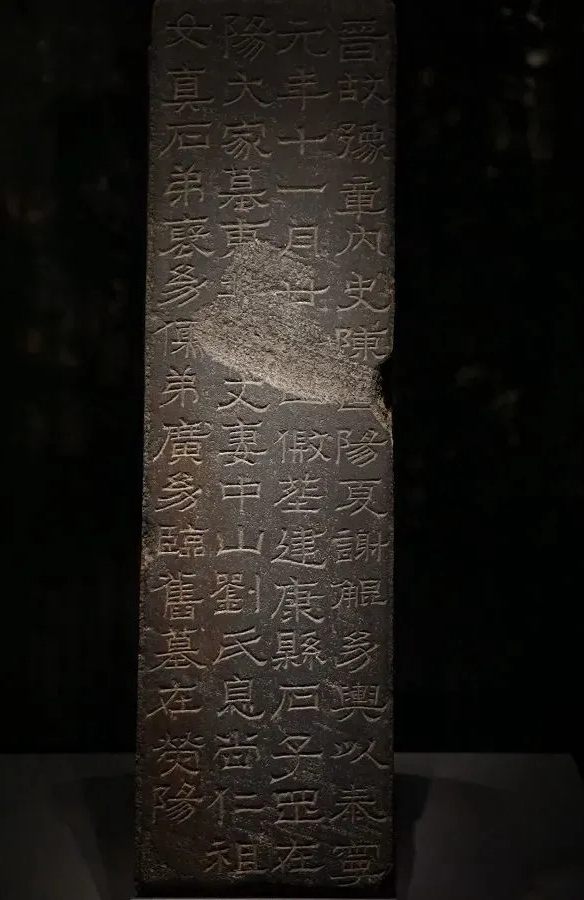 晉故豫章內史陳國陽夏謝鯤幼輿以泰寧
元年十一月廿假塟建康縣石子罡在
陽大家墓東北丈妻中山劉氏息尚仁祖
女真石弟裒幼儒弟廣幼臨舊墓在熒陽